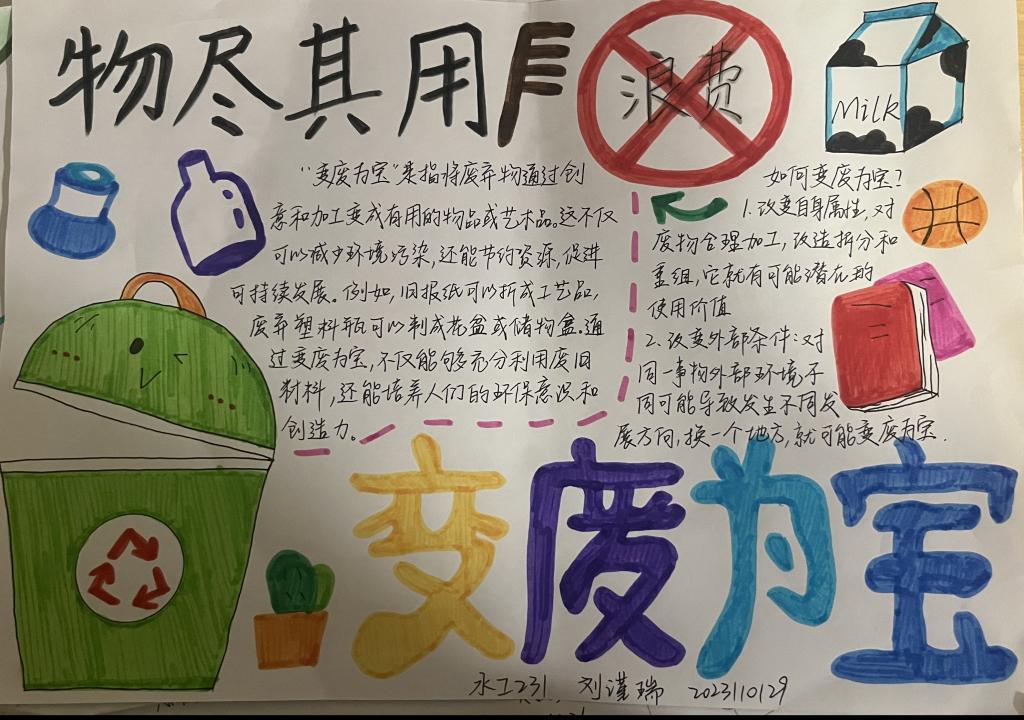 物尽其用
浪费
Milk
“变废为宝”是指将废弃物通过创
意和加工变成有用的物品或艺术品。这不仅
可以减少环境污染,还能节约资源,促进
可持续发展。例如,旧报纸可以折成工艺品,
废弃塑料瓶可以制成花盆或储物盒。通
过变废为宝,不仅能够充分利用废旧
材料,还能培养人们的环保意识和
创造力。
如何变废为宝?
1.改变自身属性,对
废物合理加工,改造拆分和
重组,它就有可能潜在的
使用价值
2.改变外部条件:对
同一事物外部环境不
同可能导致发生不同发
展方向,换一个地方,就可能变废为宝.
变废为宝
水工231 刘谨瑞 2023110129